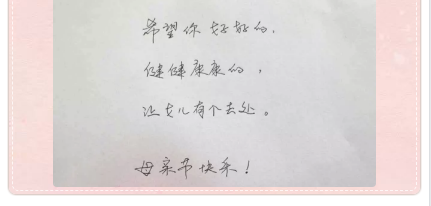 希望你好好的，
健健康康的，
让女儿有个去处。
母亲节快乐！